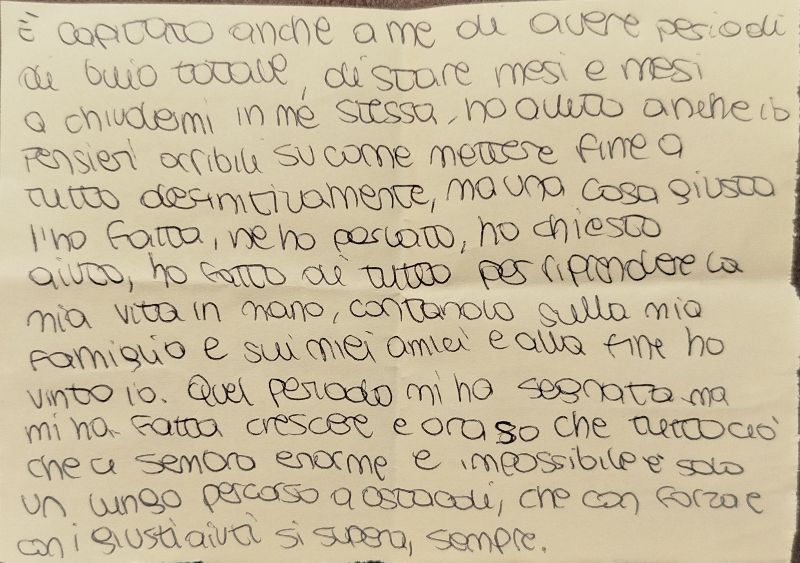 È capitato anche a me di avere periodi
di buio totale, di stare mesi e mesi
a chiudermi in me stessa, ho avuto anche io
pensieri orribili su come mettere fine a
tutto definitivamente, ma una cosa giusta
l'ho fatta, ne ho parlato, ho chiesto
aiuto, ho fatto di tutto per riprendere la
mia vita in mano, contando sulla mia
famiglia e sui miei amici e alla fine ho
vinto io. Quel periodo mi ha segnata ma
mi ha fatta crescere e ora so che tutto ciò
che ci sembra enorme e impossibile è solo
un lungo percorso a ostacoli, che con forza e
con i giusti aiuti si supera, sempre.